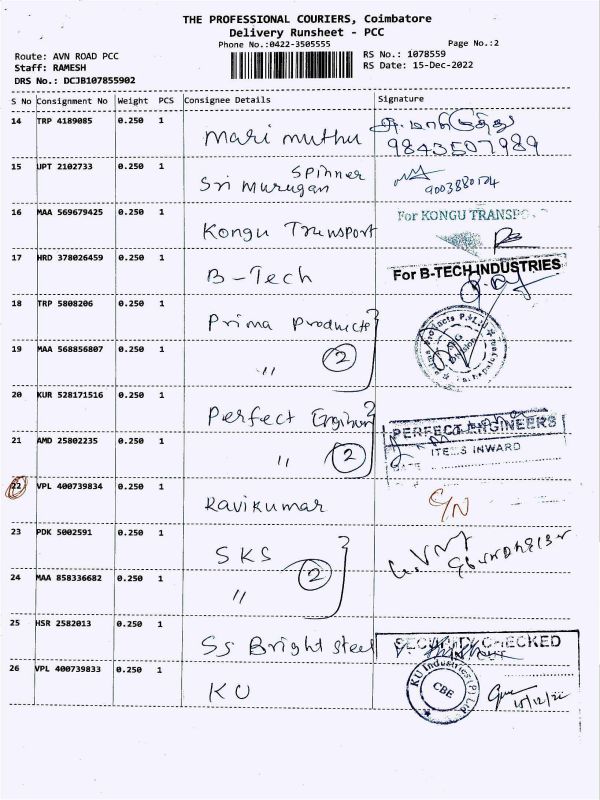 THE PROFESSIONAL COURIERS, Coimbatore
Delivery Runsheet - PCC
Phone No.:0422-3505555
Page No.:2
Route: AVN ROAD PCC
RS No.: 1078559
Staff: RAMESH
RS Date: 15-Dec-2022
DRS No.: DCJB107855902
S No Consignment No Weight PCS Consignee Details Signature
14 TRP 4189085 0.250 1 Mari muthu
9843507989
15 UPT 2102733 0.250 1 Sri Murugan Spinner
16 MAA 569679425 0.250 1 Kongu Transport For KONGU TRANSPO
17 HRD 378026459 0.250 1 B-Tech For B-TECH INDUSTRIES
18 TRP 5808206 0.250 1 Prima Products
19 MAA 568856807 0.250 1 〃 2
20 KUR 528171516 0.250 1 Perfect PERFECT ENGINEERS
ITEMS INWARD
DATE
21 AMD 25802235 0.250 1 〃 2
22 VPL 400739834 0.250 1 Ravikumar C/N
23 PDK 5002591 0.250 1 SKS
24 MAA 858336682 0.250 1 〃 2
25 HSR 2582013 0.250 1 Ss Bright steel SECURITY CHECKED
26 VPL 400739833 0.250 1 KU KU Industries (P) Ltd CBE
15/12/22